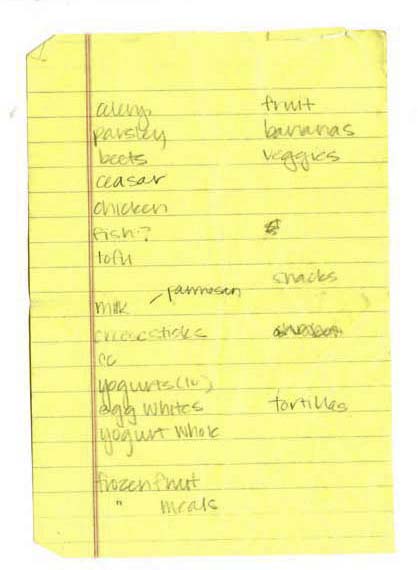 celery
parsley
beets
ceasar
chicken
fish?
tofu
parmesan
milk
cheesesticks
cc
yogurts (10)
egg whites
yogurt whole
frozen fruit
" meals
fruit
bananas
veggies
snacks
tortillas